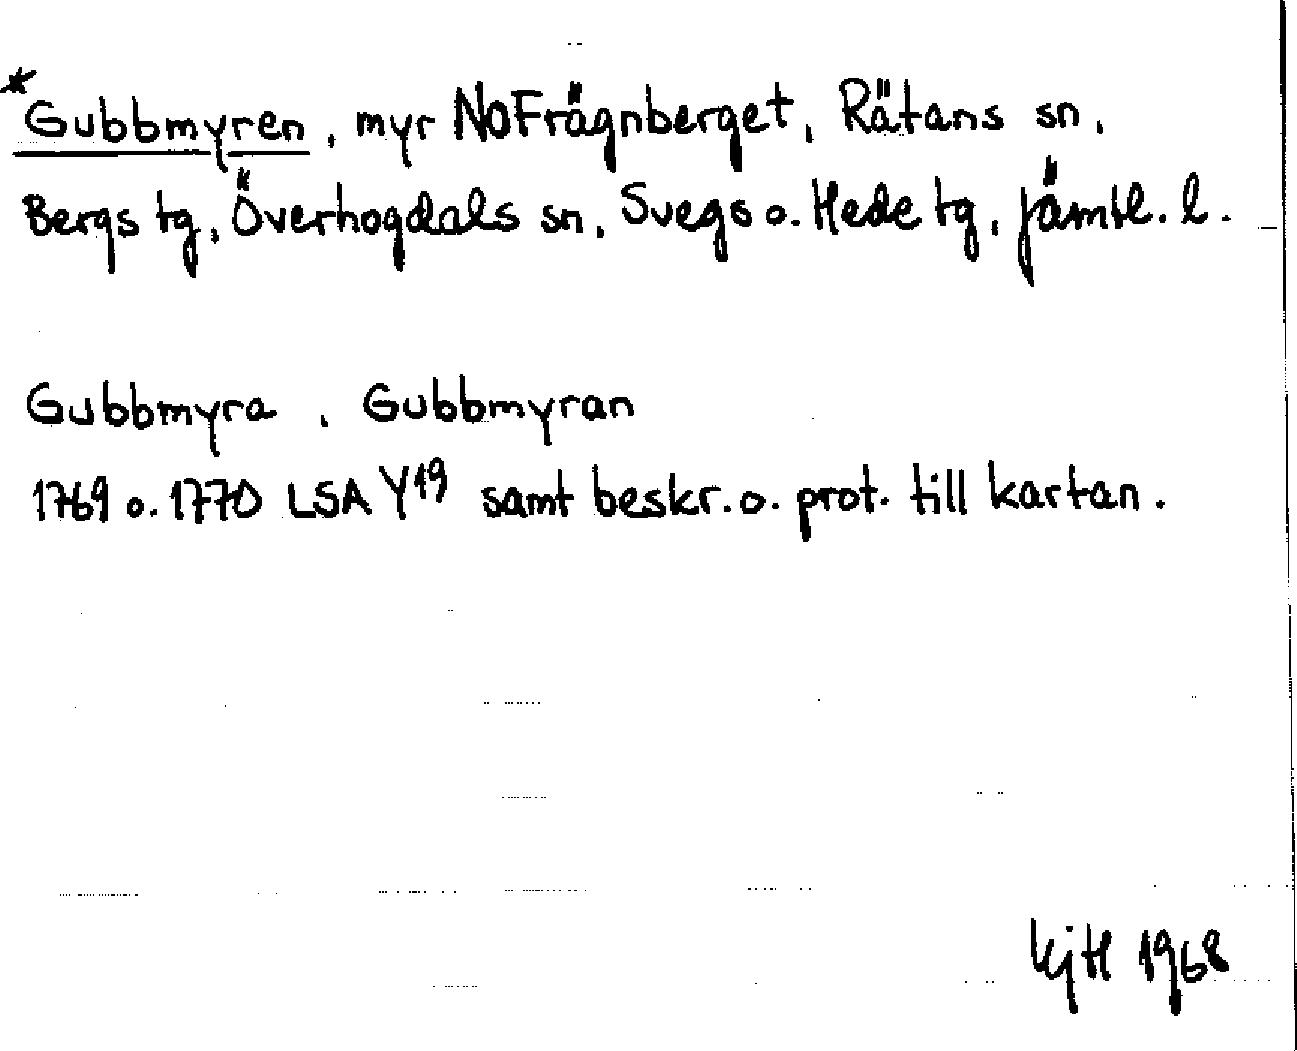 *Gubbmyren, myr NoFrägnberget, Rätans sn,
Bergs tg, Överhogdals sn, Svegs o. Hede tg, Jämtl. l.
Gubbmyra, Gubbmyran
1769 o. 1770 LSA Y19 samt beskr. o. prot. till kartan.
KjH 1968